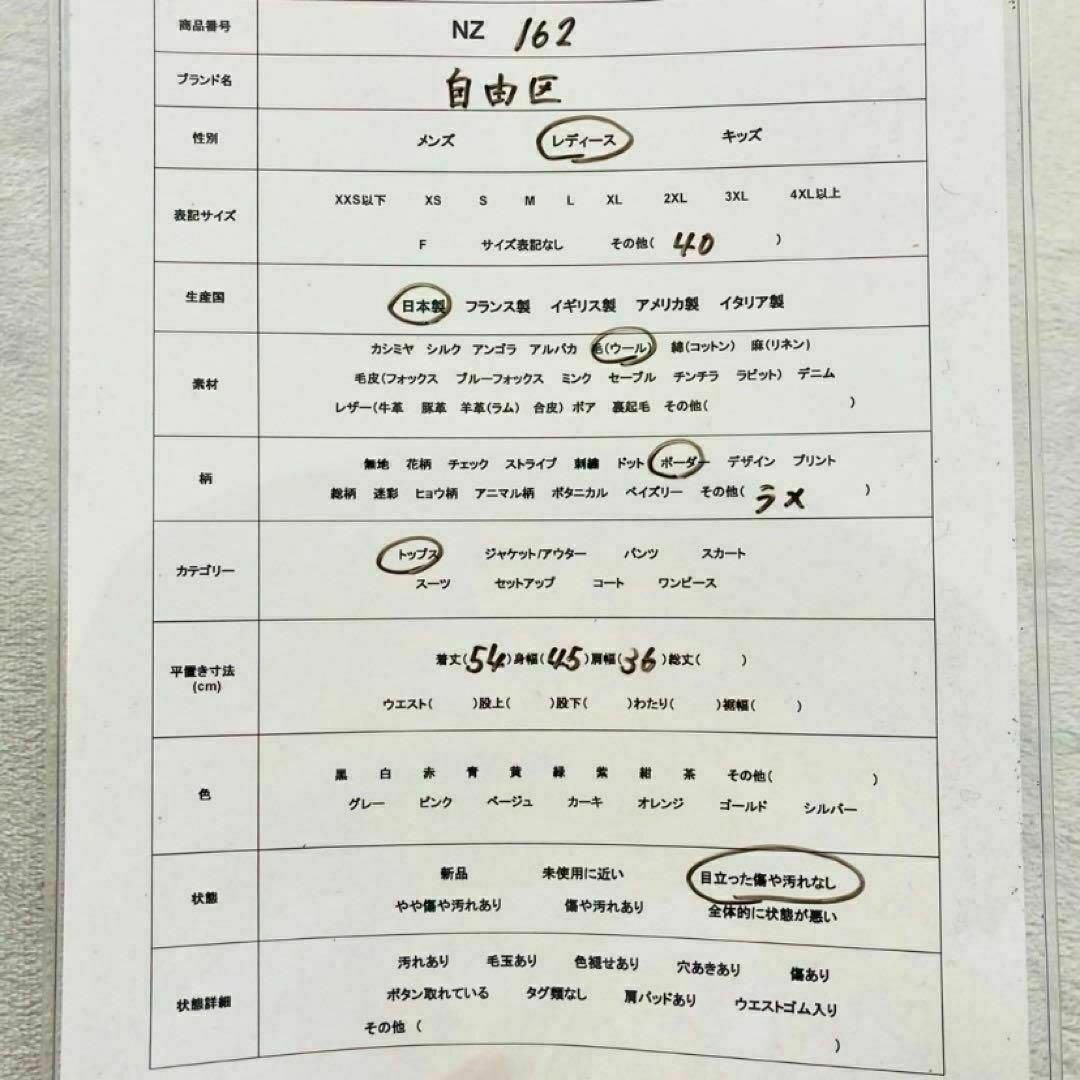 商品番号 NZ 162
ブランド名 自由区
性別 メンズ レディース キッズ
表記サイズ XXS以下 XS S M L XL 2XL 3XL 4XL以上
F サイズ表記なし その他( 40 )
生産国 日本製 フランス製 イギリス製 アメリカ製 イタリア製
カシミヤ シルク アンゴラ アルパカ 毛(ウール) 綿(コットン) 麻(リネン)
素材 毛皮(フォックス ブルーフォックス ミンク セーブル チンチラ ラビット) デニム
レザー(牛革 豚革 羊革(ラム) 合皮) ボア 裏起毛 その他( )
柄 無地 花柄 チェック ストライプ 刺繍 ドット ボーダー デザイン プリント
総柄 迷彩 ヒョウ柄 アニマル柄 ボタニカル ペイズリー その他( ラメ )
カテゴリー トップス ジャケット/アウター パンツ スカート
スーツ セットアップ コート ワンピース
平置き寸法 着丈(54)身幅(45)肩幅(36)総丈( )
(cm) ウエスト( )股上( )股下( )わたり( )裾幅( )
色 黒 白 赤 青 黄 緑 紫 紺 茶 その他( )
グレー ピンク ベージュ カーキ オレンジ ゴールド シルバー
状態 新品 未使用に近い 目立った傷や汚れなし
やや傷や汚れあり 傷や汚れあり 全体的に状態が悪い
状態詳細 汚れあり 毛玉あり 色褪せあり 穴あきあり 傷あり
ボタン取れている タグ類なし 肩パッドあり ウエストゴム入り
その他 ( )